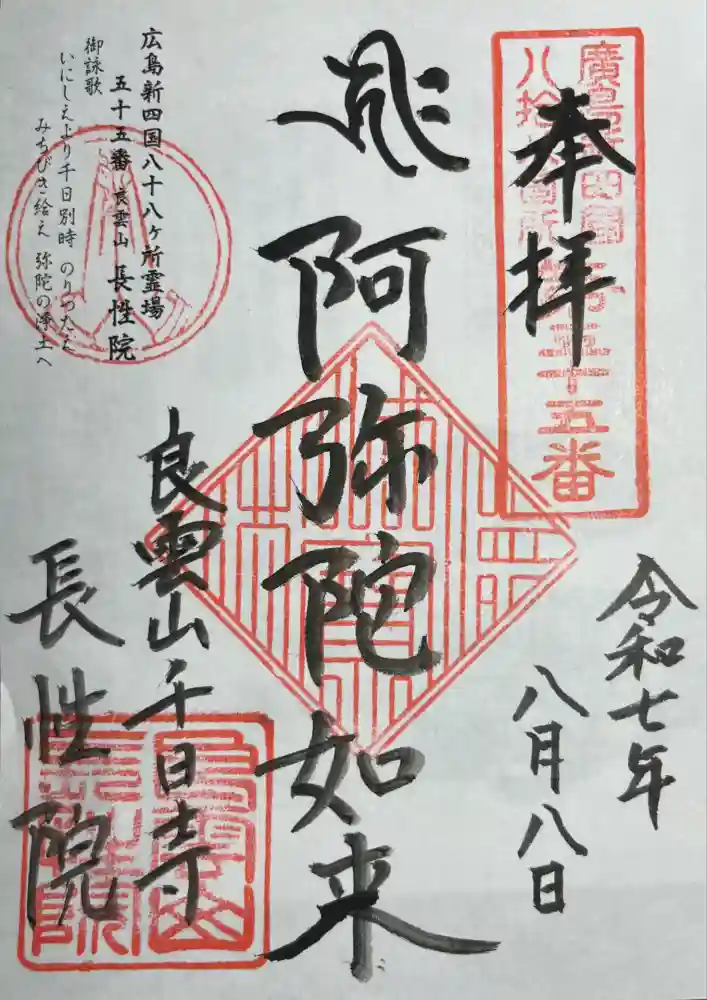 奉拝
廣島新四國
八拾八箇所
第五十五番
令和七年
八月八日
阿弥陀如来
良雲山千日寺
長性院
良雲山
長性院
広島新四国八十八ヶ所霊場
五十五番 良雲山 長性院
御詠歌
いにしえより千日別時 のりつたえ
みちびき給え 弥陀の浄土へ